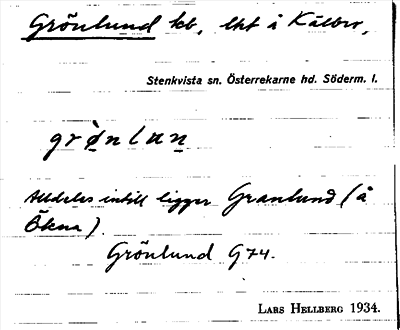 Grönlund tbt, lht å Kälbro,
Stenkvista sn. Österrekarne hd. Söderm. l.
grö̀nlan
Alldeles intill ligger Granlund (å
Ökna).
Grönlund G74.
LARS HELLBERG 1934.